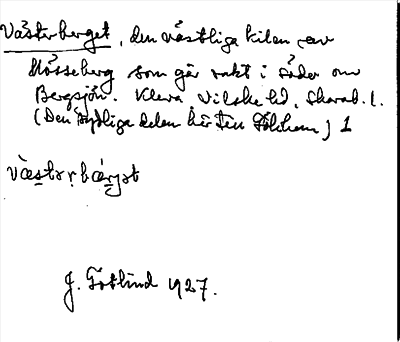 Västerberget, den västliga kilen av
Mösseberg som går rakt i söder om
Bergsjön. Kleva, Vilske hd, Skarab. l.
(Den sydliga delen hör till Sörhem) 1
væstərbærjət
J. Götlind 1927.